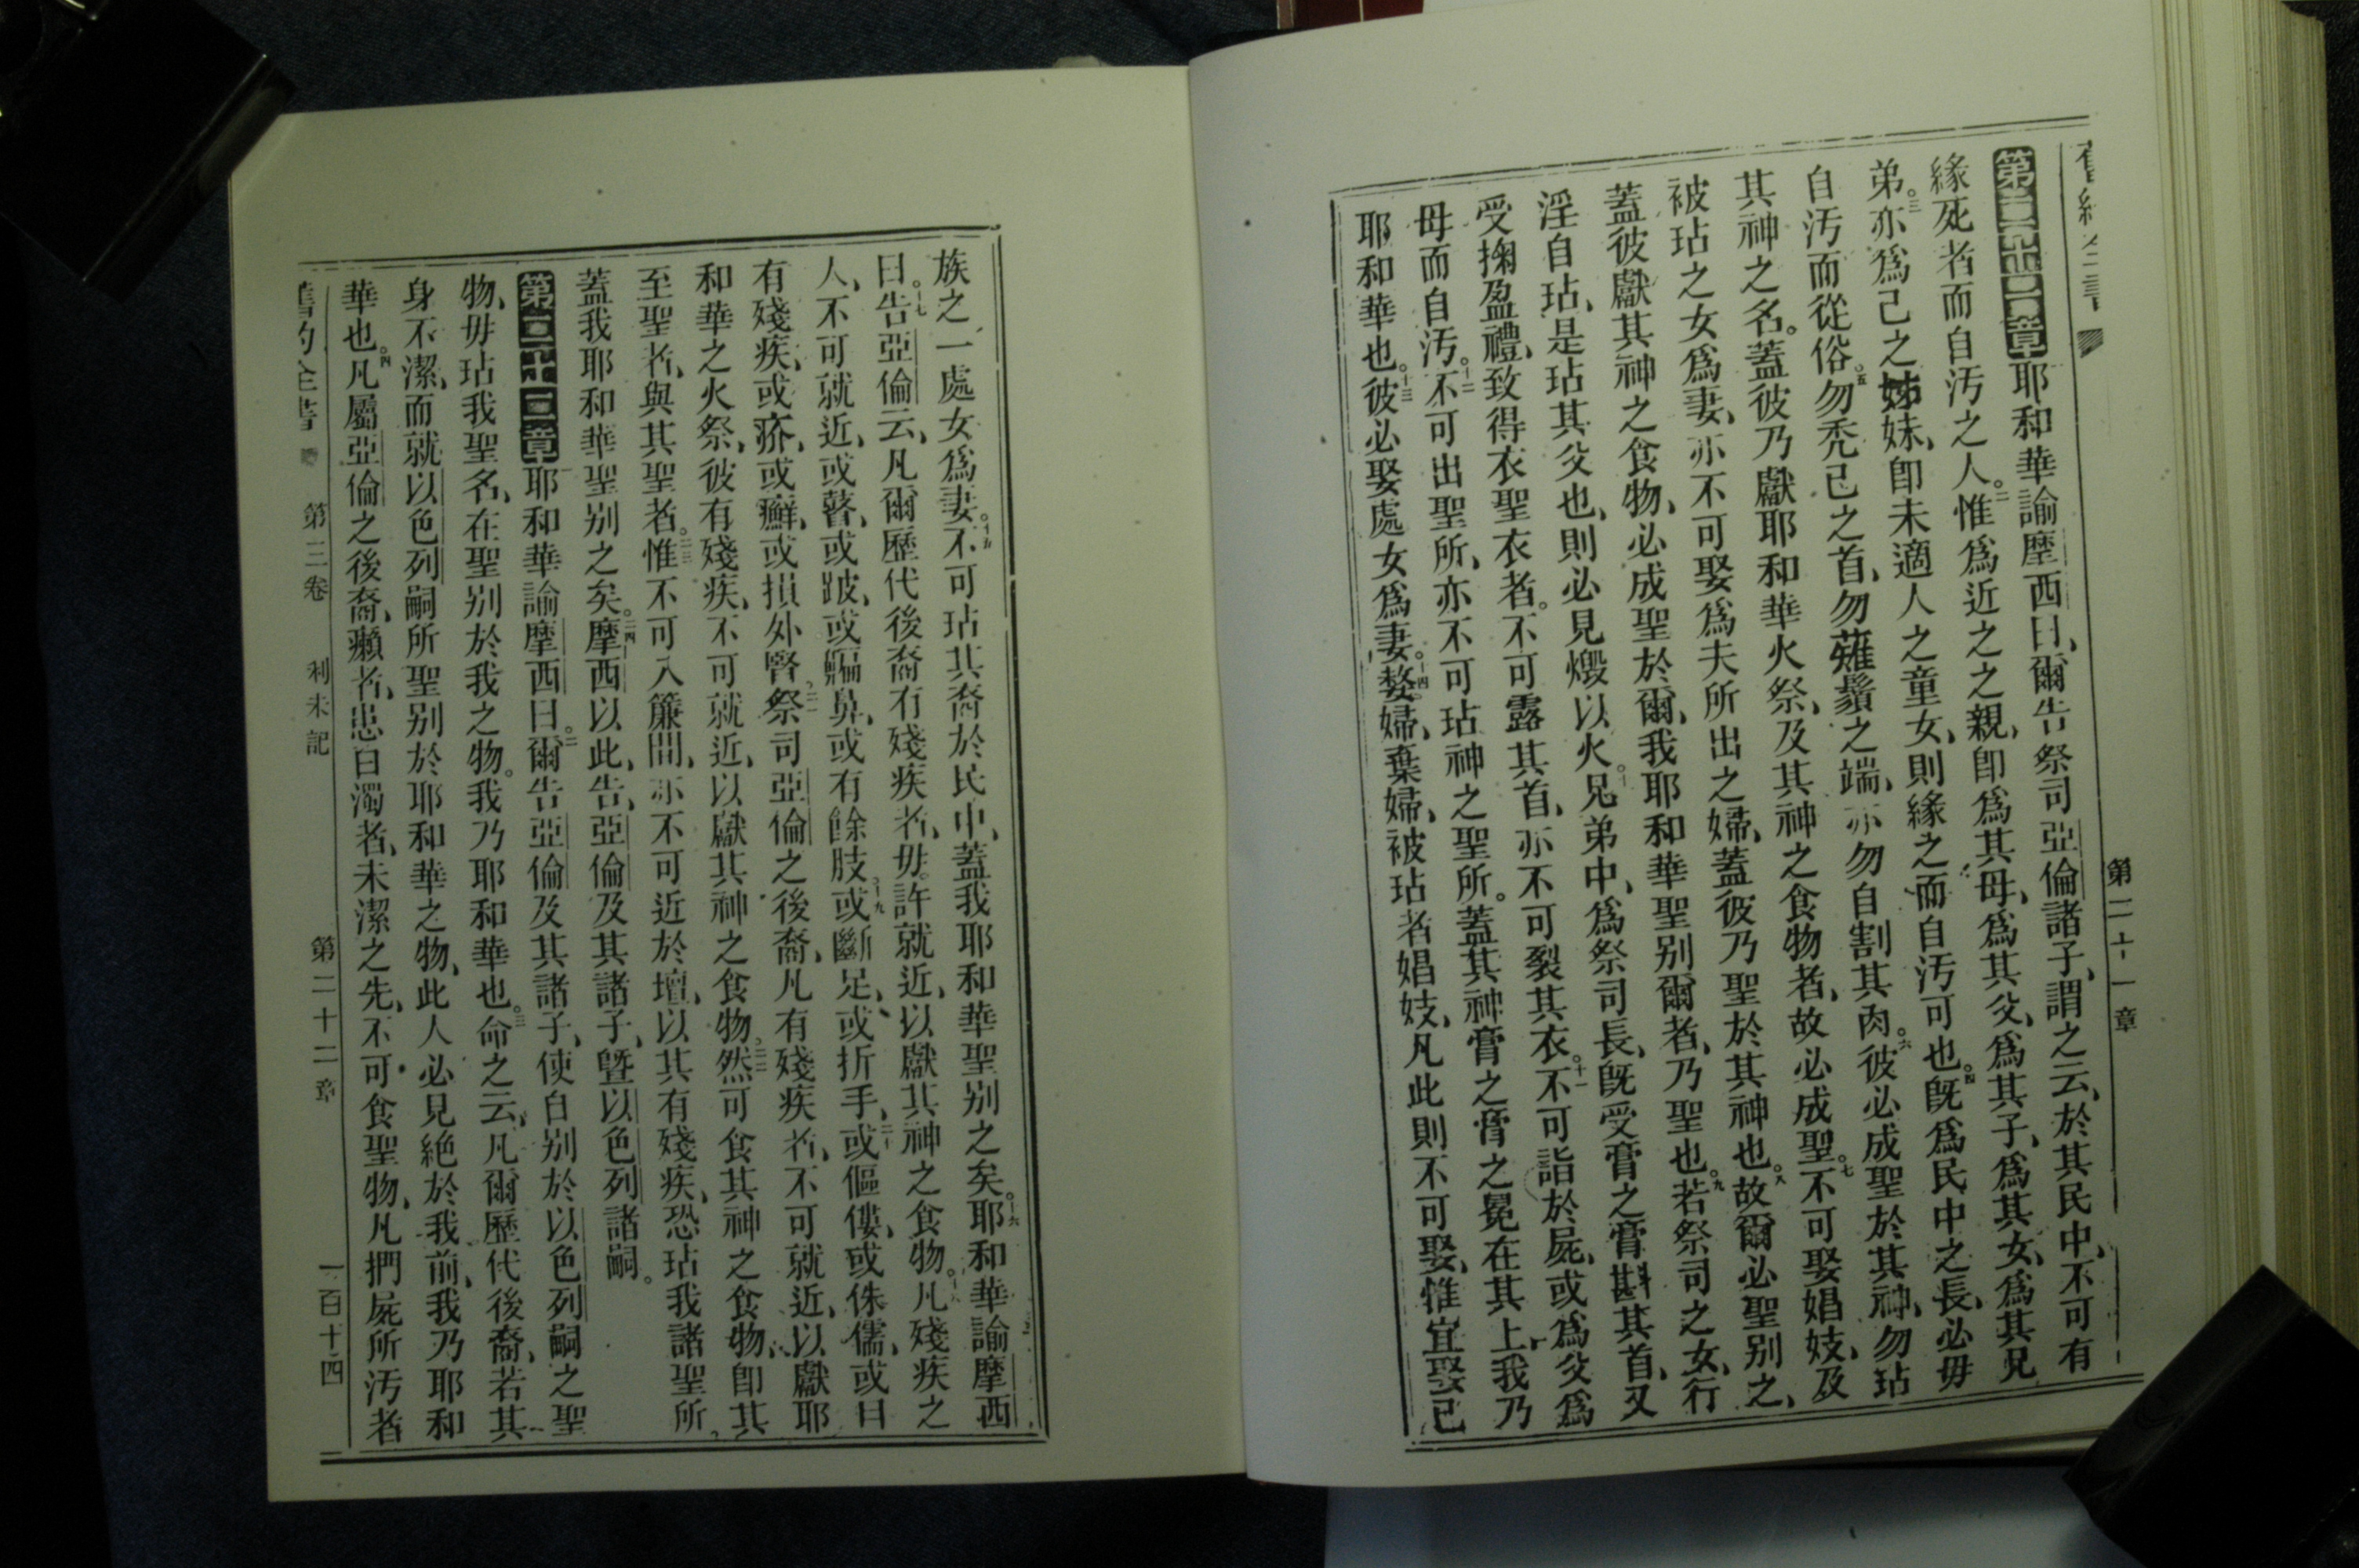 第二十一章
第二十一章耶和華諭摩西曰、爾告祭司亞倫諸子、謂之云、於其民中、不可有
緣死者而自汚之人。二惟爲近之之親、卽爲其母、爲其父、爲其子、爲其女、爲其兄
弟。三亦爲己之姊妹、卽未適人之童女、則緣之而自汚可也。四旣爲民中之長、必毋
自汚而從俗。五勿禿己之首、勿薙鬚之端、亦勿自割其肉。六彼必成聖於其神、勿玷
其神之名。蓋彼乃獻耶和華火祭、及其神之食物者、故必成聖。七不可娶娼妓、及
被玷之女爲妻、亦不可娶爲夫所出之婦、蓋彼乃聖於其神也。八故爾必聖别之、
蓋彼獻其神之食物、必成聖於爾、我耶和華聖别爾者、乃聖也。九若祭司之女、行
淫自玷、是玷其父也、則必見燬以火。十兄弟中、爲祭司長、旣受膏之膏斟其首、又
受掬盈禮、致得衣聖衣者。不可露其首、亦不可裂其衣。十一不可詣於屍、或爲父爲
母而自汚。十二不可出聖所、亦不可玷神之聖所。蓋其神膏之膏之冕在其上、我乃
耶和華也。十三彼必娶處女爲妻。十四嫠婦、棄婦、被玷者娼妓、凡此則不可娶、惟宜娶己
族之一處女爲妻。十五不可玷其裔於民中、蓋我耶和華聖别之矣。十六耶和華諭摩西
曰。十七告亞倫云、凡爾歷代後裔有殘疾者、毋許就近、以獻其神之食物。十八凡殘疾之
人、不可就近、或瞽、或跛、或騙鼻、或有餘肢。十九或斷足、或折手、二十或傴僂、或侏儒、或目
有殘疾、或疥、或癬、或損外腎。二一祭司亞倫之後裔、凡有殘疾者、不可就近、以獻耶
和華之火祭、彼有殘疾、不可就近、以獻其神之食物。二二然可食其神之食物、卽其
至聖者、與其聖者。二三惟不可入簾間、亦不可近於壇、以其有殘疾、恐玷我諸聖所、
蓋我耶和華聖别之矣。二四摩西以此、告亞倫及其諸子、曁以色列諸嗣。
第二十二章耶和華諭摩西曰。二爾告亞倫及其諸子、使自别於以色列嗣之聖
物、毋玷我聖名、在聖别於我之物。我乃耶和華也。三命之云、凡爾歷代後裔、若其
身不潔、而就以色列嗣所聖别於耶和華之物、此人必見絶於我前、我乃耶和
華也。四凡屬亞倫之後裔、癩者、患白濁者、未潔之先、不可食聖物、凡捫屍所汚者
第三卷 利未記 第二十二章 一百十四